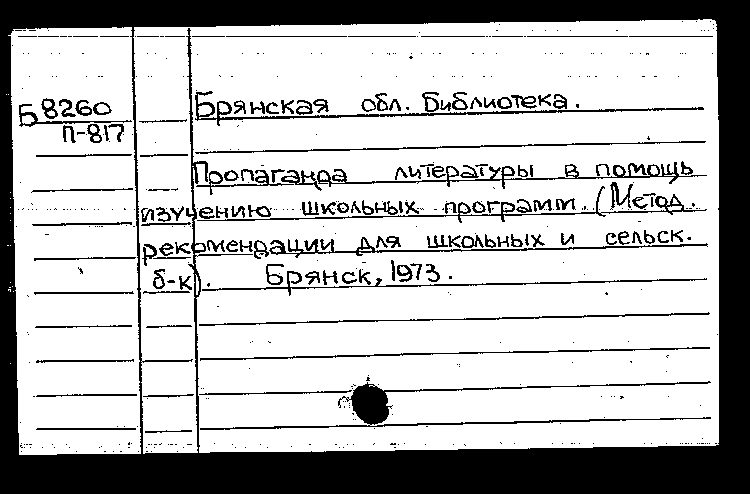 Б8260
П-817
Брянская обл. библиотека.
Пропаганда литературы в помощь
изучению школьных программ. (Метод.
рекомендации для школьных и сельск.
б-к). Брянск, 1973.